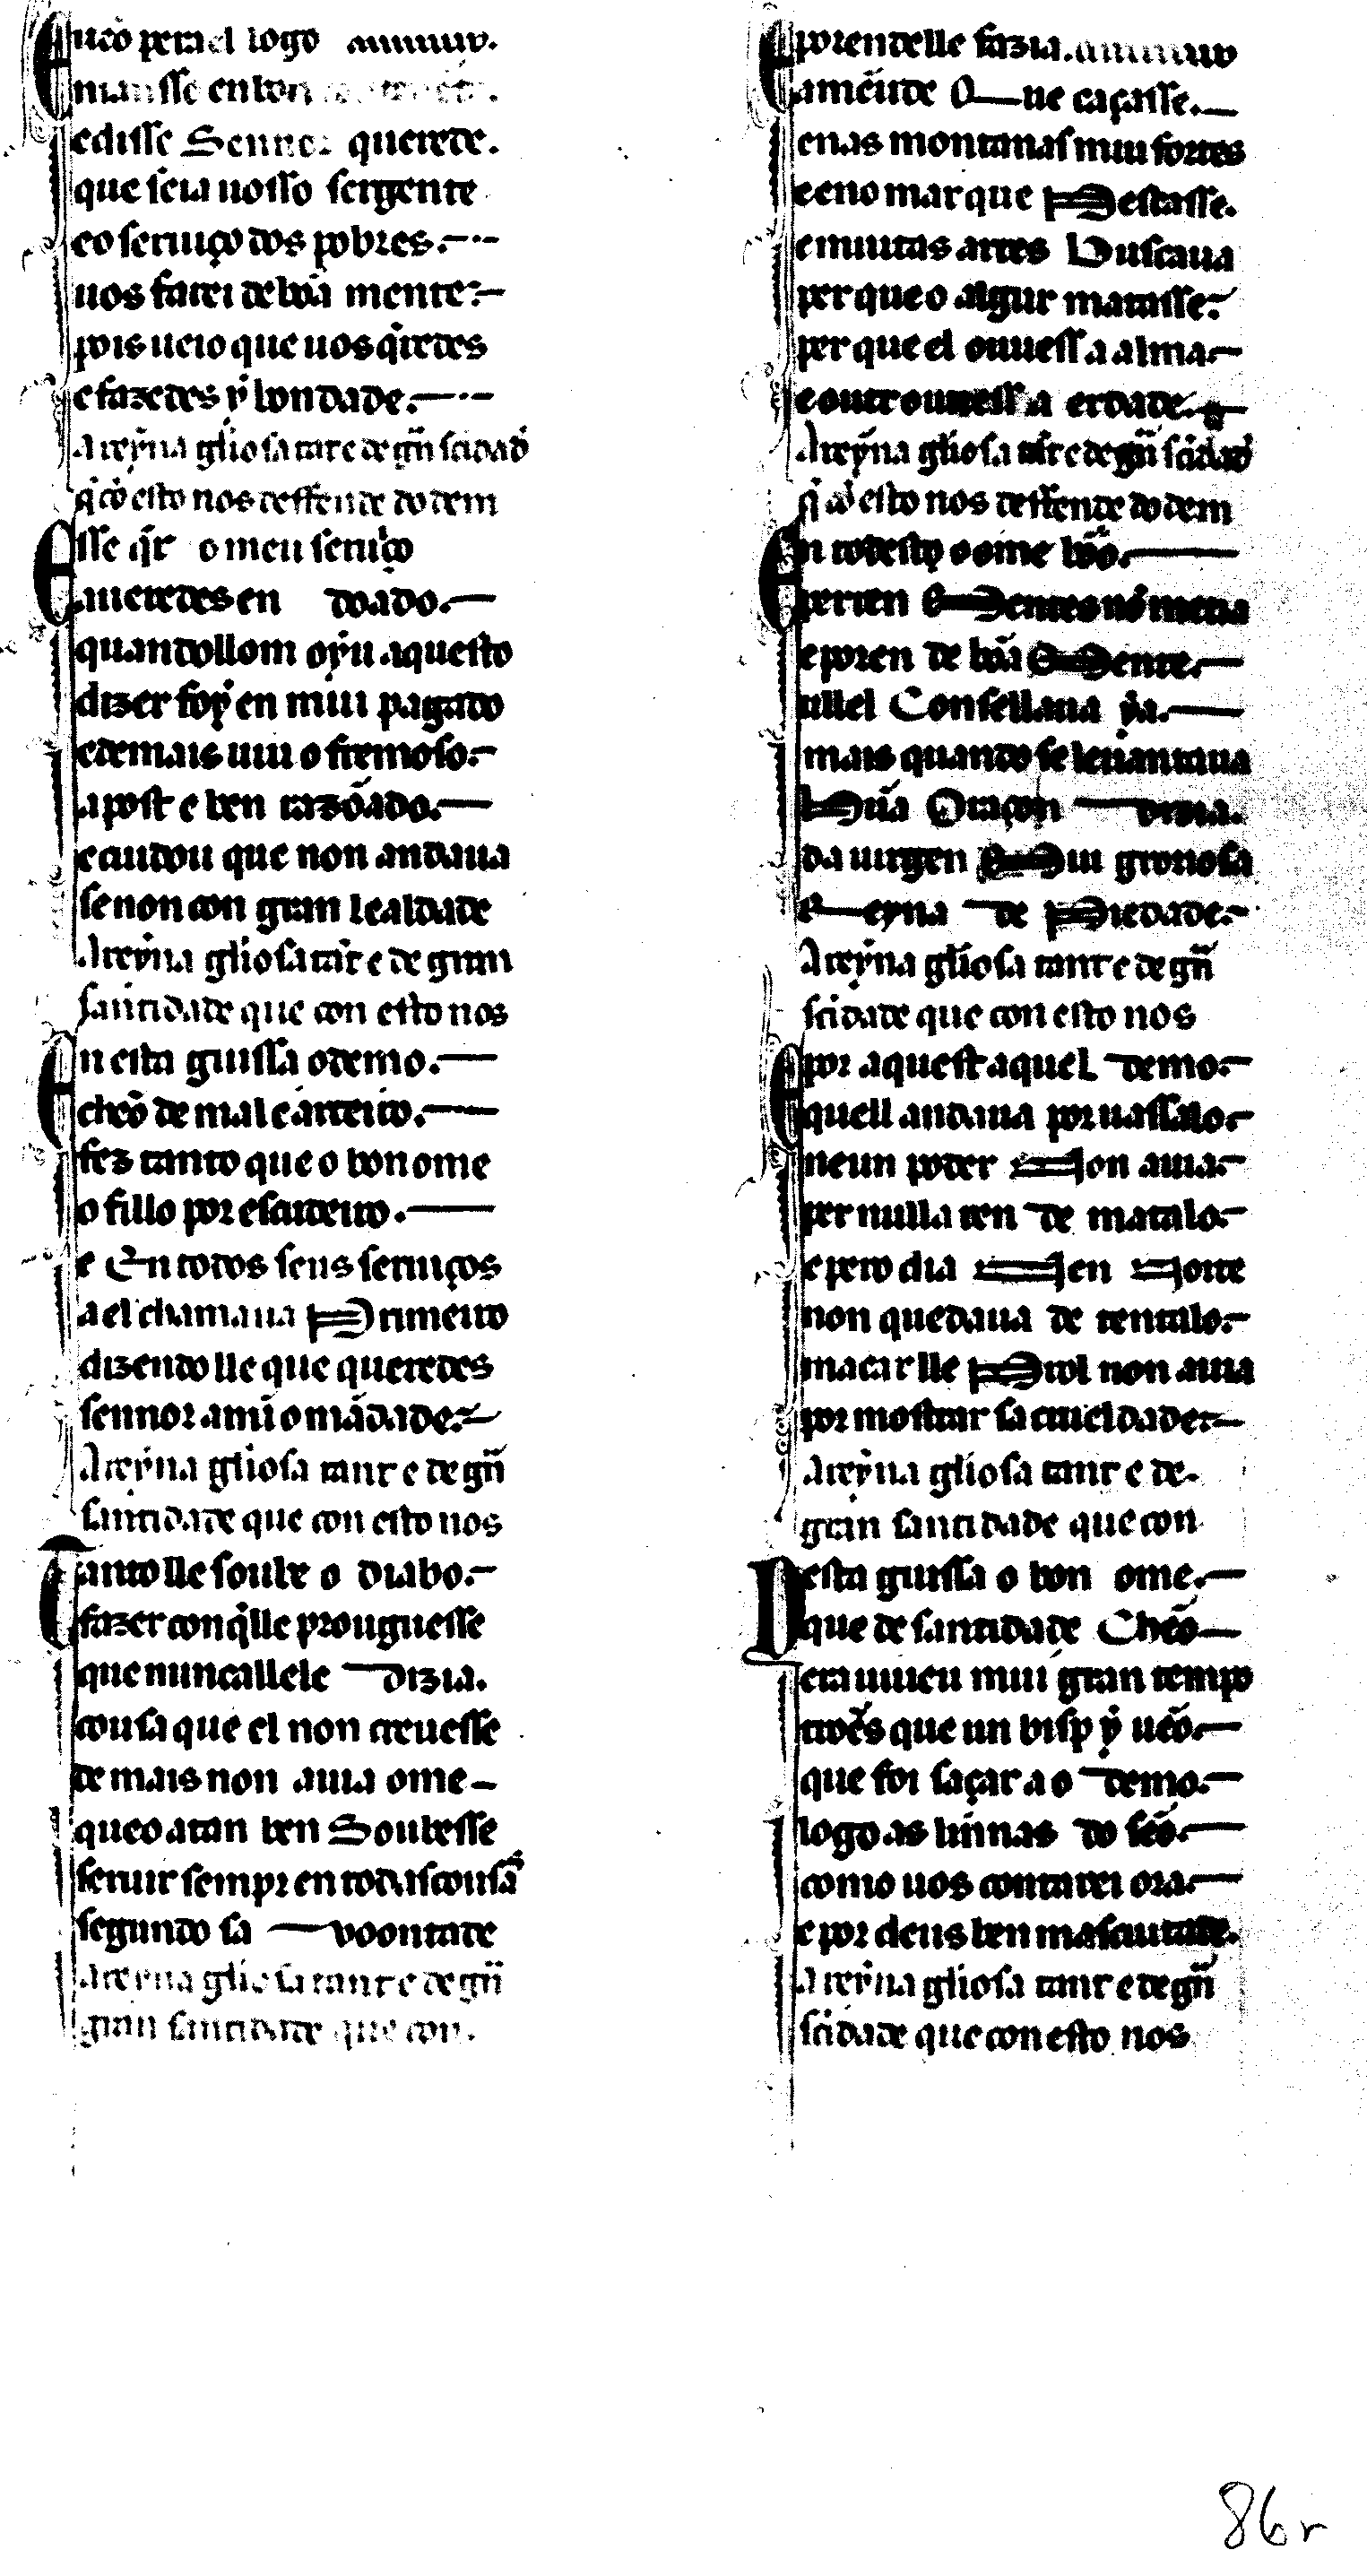 E ueo pera el logo
manssen en bon
e disse Sennor querede.
que seia uosso sergente
eo seruiço dos pobres.
uos farei de bõa mente
pois ueio que uos q̇redes
e fazedes ẏ bondade.
A reẏna gl̃iosa tant e de gr̃n scidad
q̇ cõ esto nos deffende do dem
Esse q̇r o meu seruiço
aueredes en doado.
quandollom oẏu aquesto
dizer foẏ en mui pagado
e demais uiu o fremoso.
apost e ben razõado.
e cuidou que non andaua
se non con gran lealdade
A reẏna gl̃iosa tãt e de gran
santidade que con esto nos
En esta guissa o demo.
cheo de mal e arteiro.
fez tanto que o bon ome
o fillo por escudeiro.
e En todos seus seruiços
a el chamaua Primeiro
dizendo lle que queredes
sennor a mĩ o mãdade.
A reẏna gl̃iosa tant e de gr̃n
santidade que con esto nos
Tanto lle soube o diabo.
fazer con q̇lle prouguesse
que nuncallele dizia.
cousa que el non creuesse
de mais non auia ome
queo atan ben Soubesse
seruir sempr en todas cousas
segundo sa uoontade
A reẏna gl̃iosa tant e de gr̃n
gran santidade que con.
E porendelle fazia.
ameude Que caçasse.
enas montanas mui fortes
e eno mar que Pescasse.
e muitas artes Buscaua
per que o algur matasse.
per que el ouuess a alma
e outr ouuess a erdade.
A reẏna gl̃iosa tãt e de gr̃n scidad
q̇ cõ esto nos deffende do dem
En todesto o ome bõo.
per ren Mentes nõ metia
e poren de bõa Mente.
ullel Consellaua ẏa.
mais quando se leuantaua
Hũa Oraçon dizia.
da uirgen Mui groriosa
Reyna de Piedade.
A reẏna gl̃iosa tant e de gr̃n
scidade que con esto nos
E por aquest aquel demo.
quell andaua por uassalo.
neun poder Non auia
per nulla ren de matalo.
e pero dia Nen Noite
non quedaua de tentalo.
macar lle Prol non auia
por mostrar sa crueldade.
A reẏna gl̃iosa tant e de.
gran santidade que con
Desta guissa o bon ome.
que de santidade Cheo
era uiueu mui gran tempo
troẽs que un bisp ẏ ueo.
que foi saçar a o demo.
logo as linnas do seo.
como uos contarei ora.
e por deus ben mascuitade.
A reẏna gl̃iosa tant e de gr̃n
scidade que con esto nos
86r